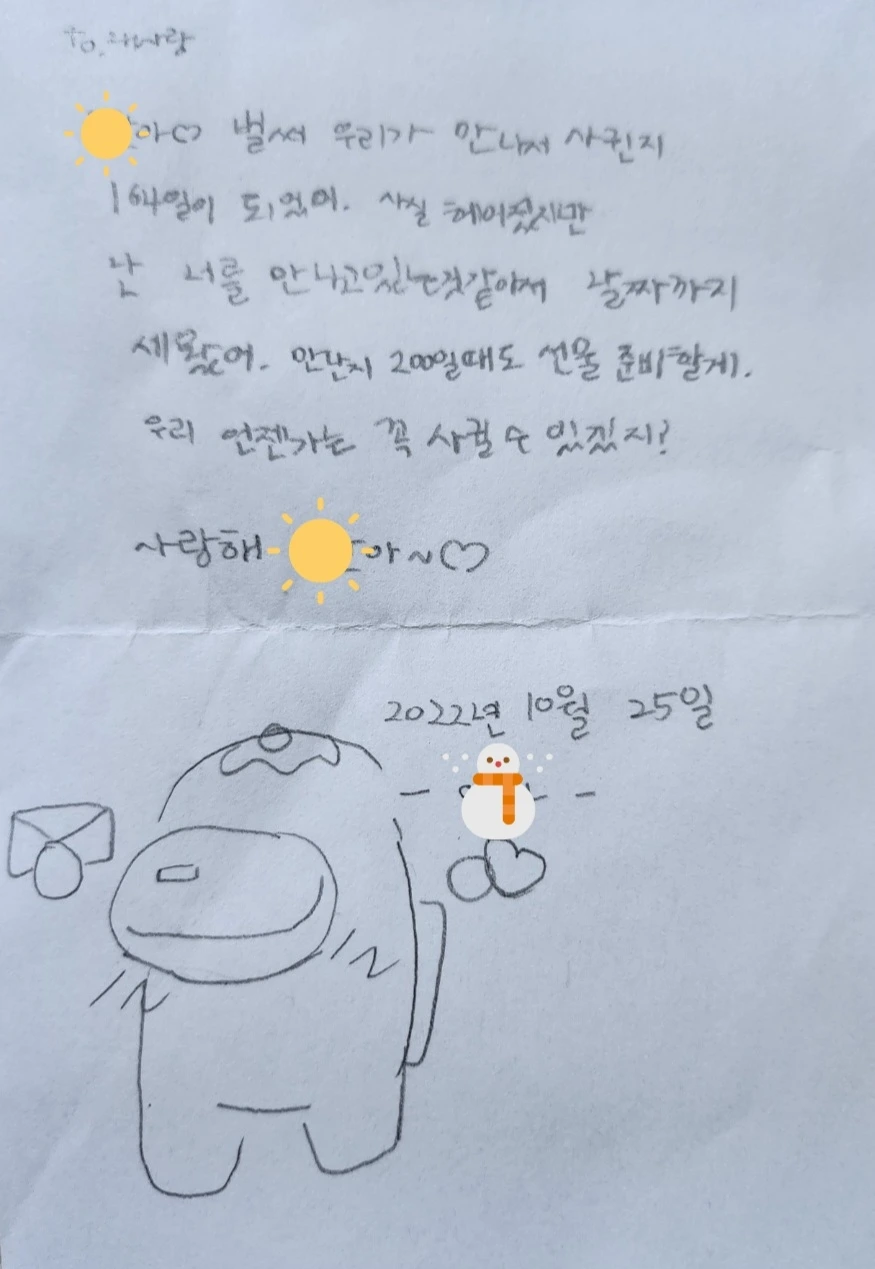 To. 내사랑
아♡ 벌써 우리가 만나서 사귄지
164일이 되었어. 사실 헤어졌지만
난 너를 만나고있는것같아서 날짜까지
세왔어. 만난지 200일때도 선물 준비할게.
우리 언젠가는 꼭 사귈 수 있겠지?
사랑해 아~♡
2022년 10월 25일